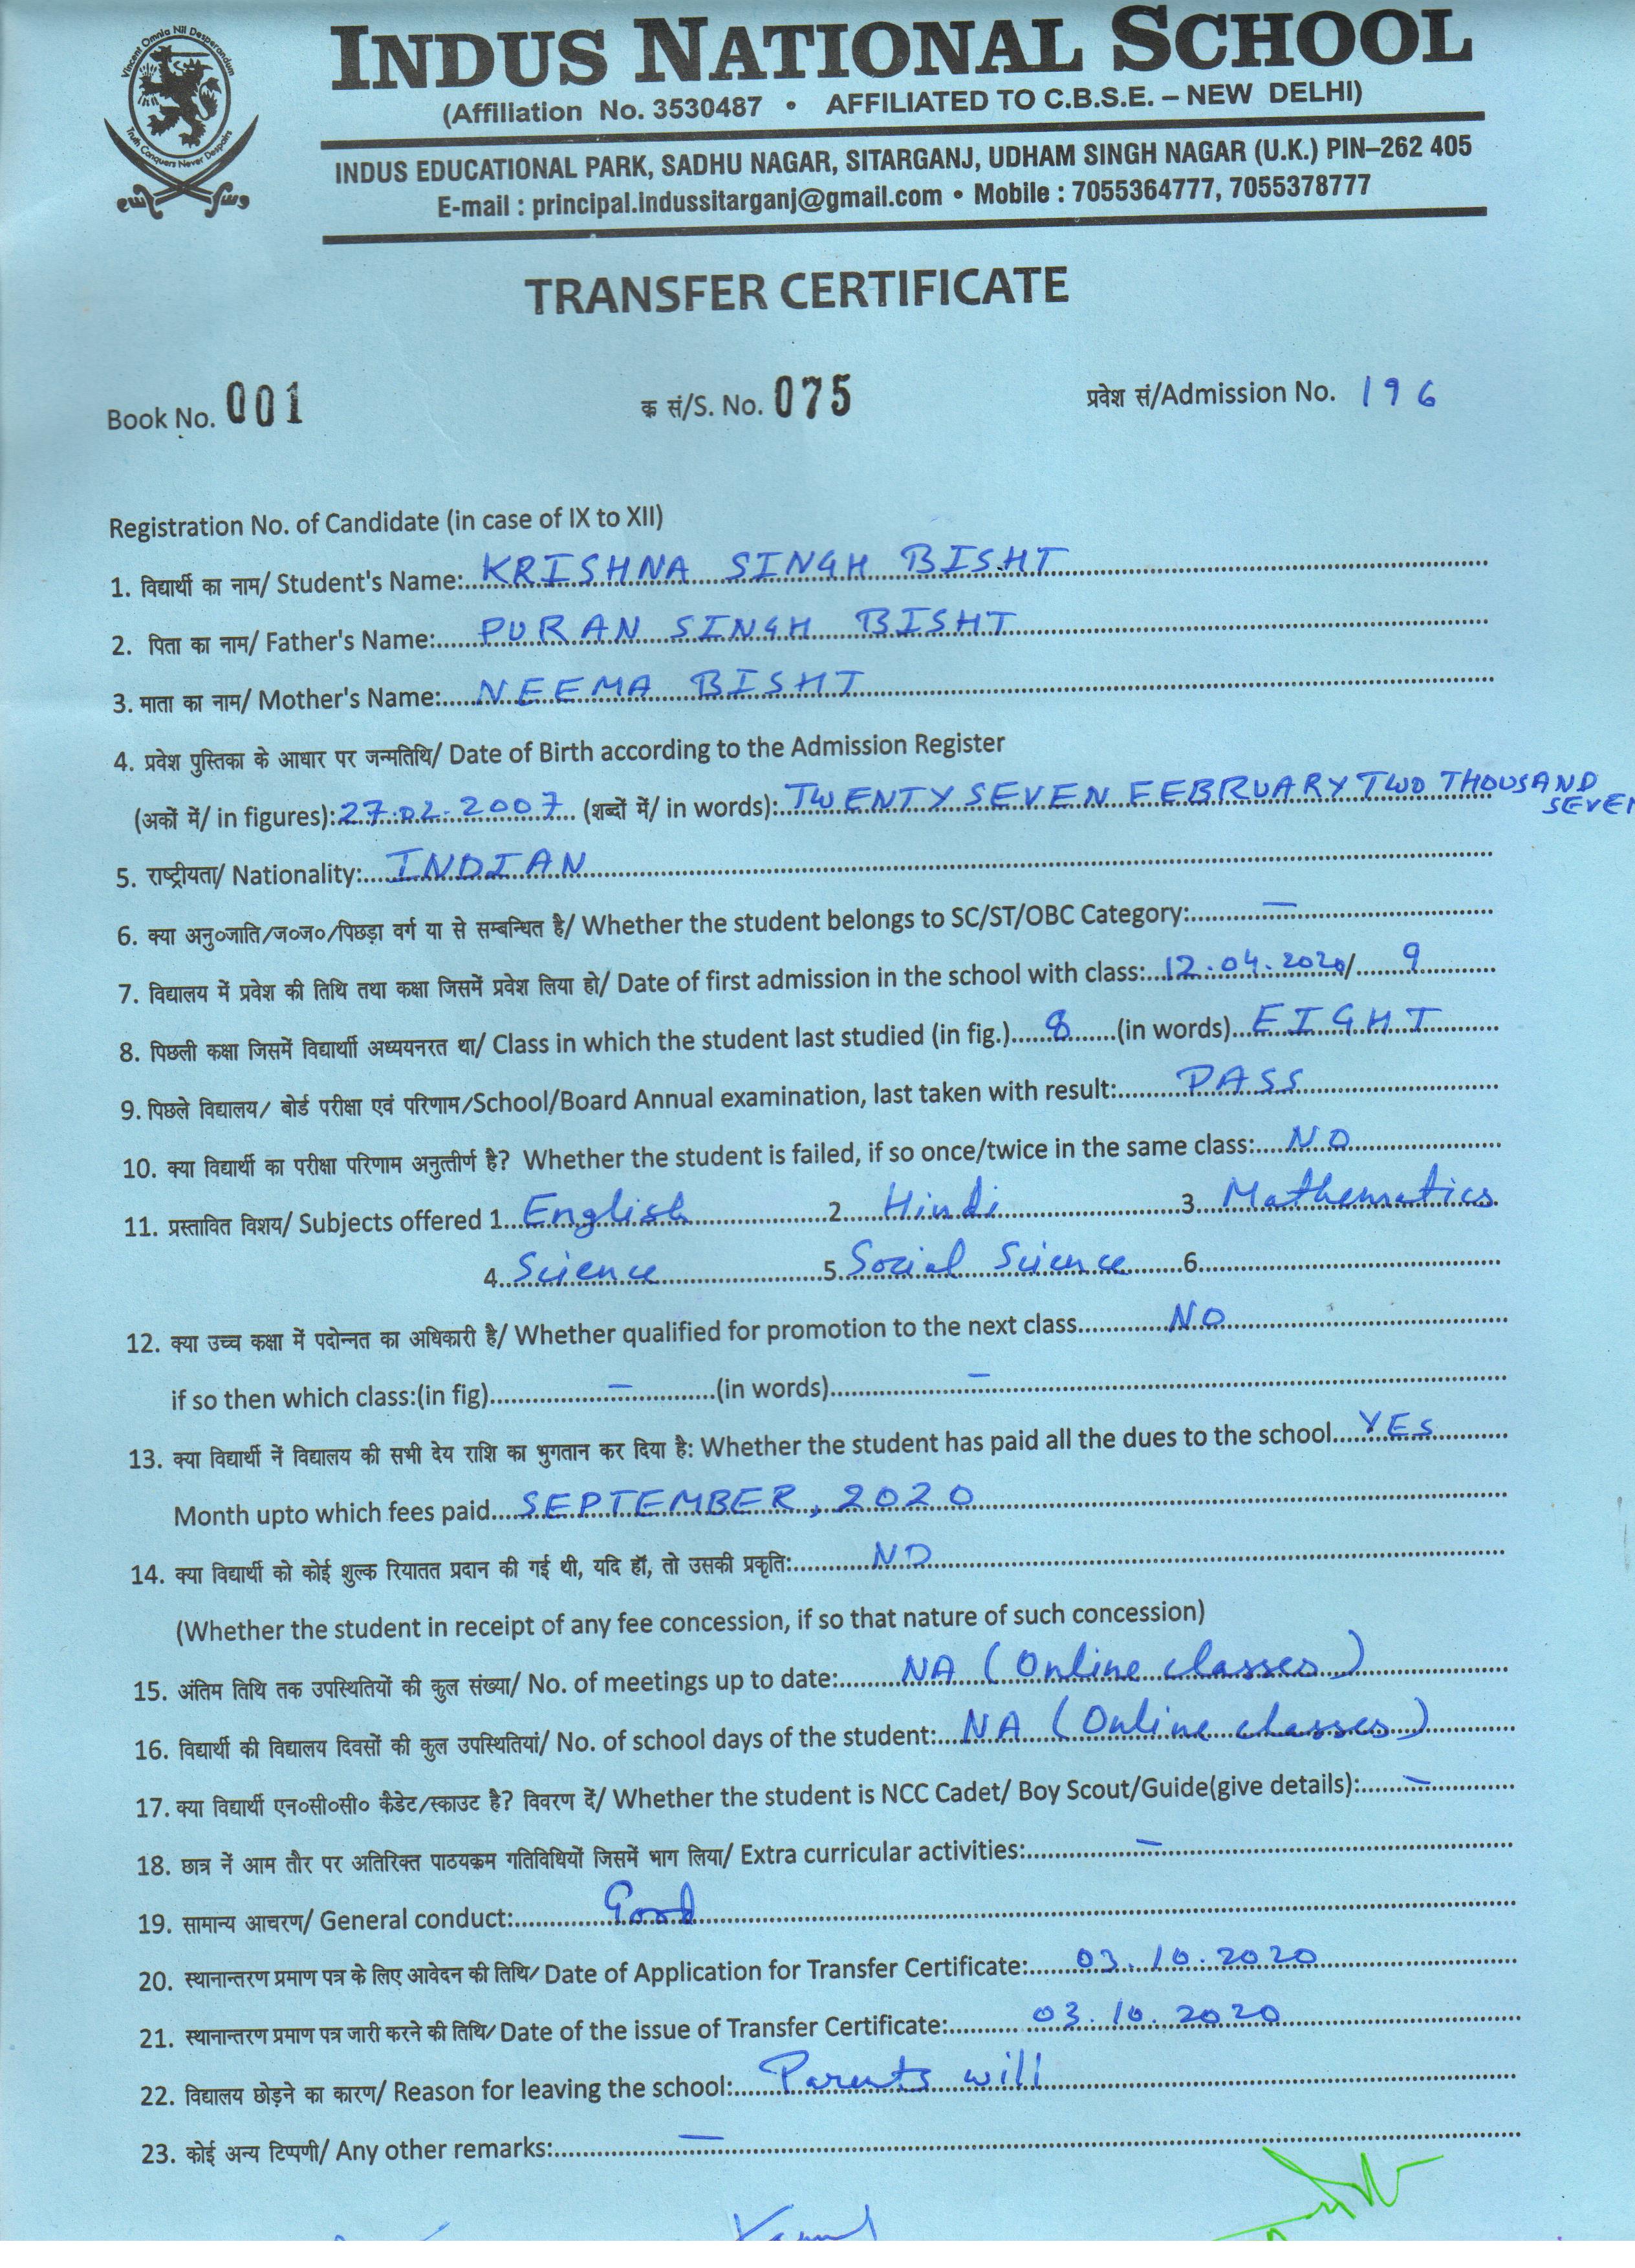 Vincent Omnia Nil Desperandum
Truth Conquers Never Despairs
INDUS NATIONAL SCHOOL
(Affiliation No. 3530487 • AFFILIATED TO C.B.S.E. – NEW DELHI)
INDUS EDUCATIONAL PARK, SADHU NAGAR, SITARGANJ, UDHAM SINGH NAGAR (U.K.) PIN–262 405
E-mail : principal.indussitarganj@gmail.com • Mobile : 7055364777, 7055378777
TRANSFER CERTIFICATE
Book No. 001 क्र सं/S. No. 075 प्रवेश सं/Admission No. 196
Registration No. of Candidate (in case of IX to XII)
1. विद्यार्थी का नाम/ Student's Name: KRISHNA SINGH BISHT
2. पिता का नाम/ Father's Name: PURAN SINGH BISHT
3. माता का नाम/ Mother's Name: NEEMA BISHT
4. प्रवेश पुस्तिका के आधार पर जन्मतिथि/ Date of Birth according to the Admission Register
(अकों में/ in figures): 27.02.2007 (शब्दों में/ in words): TWENTY SEVEN FEBRUARY TWO THOUSAND
SEVEN
5. राष्ट्रीयता/ Nationality: INDIAN
6. क्या अनु०जाति/ज०ज०/पिछड़ा वर्ग या से सम्बन्धित है/ Whether the student belongs to SC/ST/OBC Category: —
7. विद्यालय में प्रवेश की तिथि तथा कक्षा जिसमें प्रवेश लिया हो/ Date of first admission in the school with class: 12.04.2020/ 9
8. पिछली कक्षा जिसमें विद्यार्थाी अध्ययनरत था/ Class in which the student last studied (in fig.) 8 (in words) EIGHT
9. पिछले विद्यालय/ बोर्ड परीक्षा एवं परिणाम/School/Board Annual examination, last taken with result: PASS
10. क्या विद्यार्थी का परीक्षा परिणाम अनुत्तीर्ण है? Whether the student is failed, if so once/twice in the same class: NO
11. प्रस्तावित विशय/ Subjects offered 1. English 2. Hindi 3. Mathematics
4. Science 5. Social Science 6.
12. क्या उच्च कक्षा में पदोन्नत का अधिकारी है/ Whether qualified for promotion to the next class NO
if so then which class:(in fig) — (in words) —
13. क्या विद्यार्थी नें विद्यालय की सभी देय राशि का भुगतान कर दिया है: Whether the student has paid all the dues to the school YES
Month upto which fees paid SEPTEMBER, 2020
14. क्या विद्यार्थी को कोई शुल्क रियातत प्रदान की गई थी, यदि हॉ, तो उसकी प्रकृति: NO
(Whether the student in receipt of any fee concession, if so that nature of such concession)
15. अंतिम तिथि तक उपस्थितियों की कुल संख्या/ No. of meetings up to date: NA (Online classes)
16. विद्यार्थी की विद्यालय दिवसों की कुल उपस्थितियां/ No. of school days of the student: NA (Online classes)
17. क्या विद्यार्थी एन०सी०सी० कैडेट/स्काउट है? विवरण दें/ Whether the student is NCC Cadet/ Boy Scout/Guide(give details): —
18. छात्र नें आम तौर पर अतिरिक्त पाठयक्रम गतिविधियों जिसमें भाग लिया/ Extra curricular activities: —
19. सामान्य आचरण/ General conduct: Good
20. स्थानान्तरण प्रमाण पत्र के लिए आवेदन की तिथि/ Date of Application for Transfer Certificate: 03.10.2020
21. स्थानान्तरण प्रमाण पत्र जारी करने की तिथि/ Date of the issue of Transfer Certificate: 03.10.2020
22. विद्यालय छोड़ने का कारण/ Reason for leaving the school: Parents will
23. कोई अन्य टिप्पणी/ Any other remarks: —